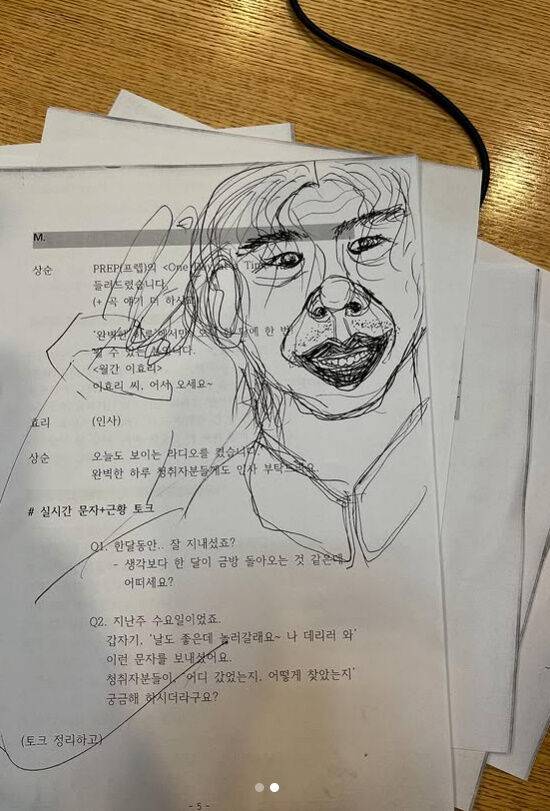 M.
상순 PREP(프렙)의 <One Time>
들려드렸습니다.
(+ 꼭 얘기 더 하시
'완벽한 하루'에서만, 오직 한 달에 한 번
볼 수 있는 분입니다.
<월간 이효리>
이효리 씨, 어서 오세요~
효리 (인사)
상순 오늘도 보이는 라디오를 켰습니다.
완벽한 하루 청취자분들께도 인사 부탁드려요.
# 실시간 문자+근황 토크
Q1. 한달동안.. 잘 지내셨죠?
- 생각보다 한 달이 금방 돌아오는 것 같은데
어떠세요?
Q2. 지난주 수요일이었죠.
갑자기, '날도 좋은데 놀러갈래요~ 나 데리러 와'
이런 문자를 보내셨어요.
청취자분들이, '어디 갔었는지, 어떻게 찾았는지'
궁금해 하시더라구요?
(토크 정리하고)
- 5 -